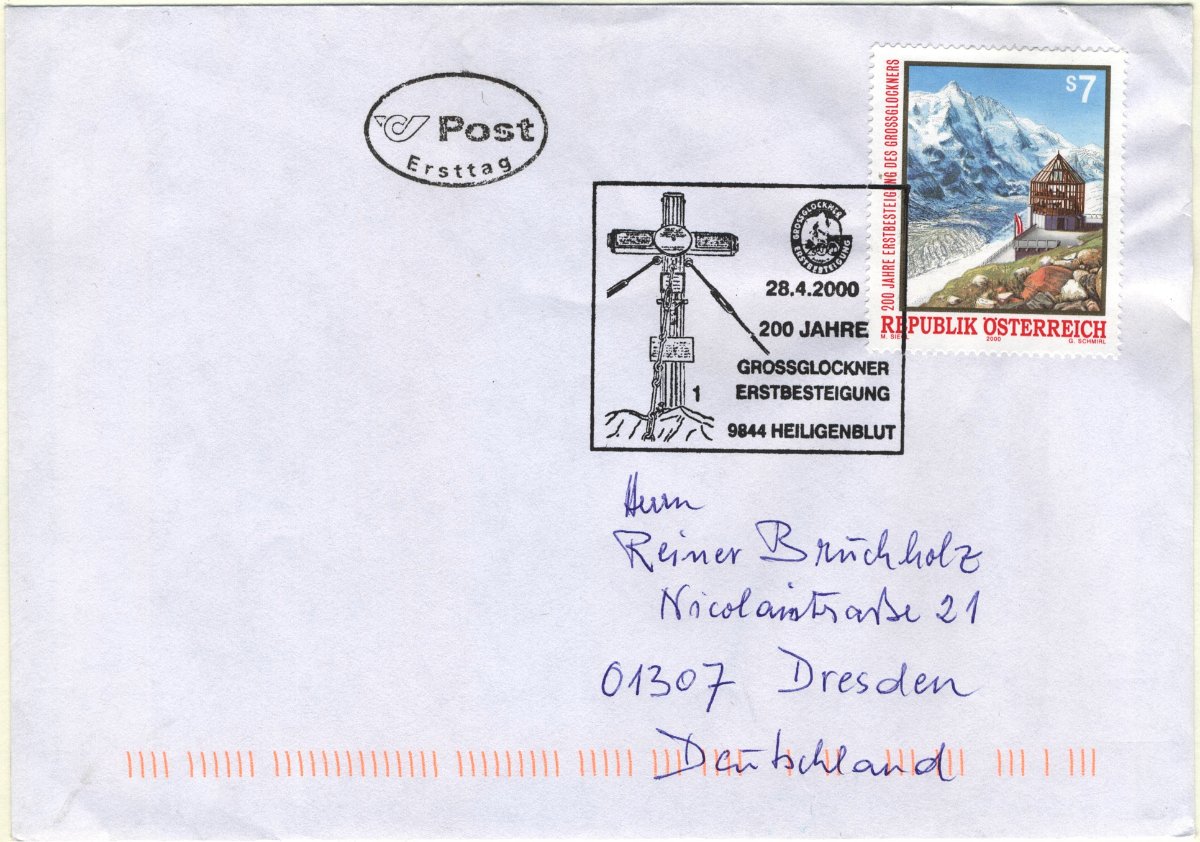 Post
Ersttag
200 JAHRE ERSTBESTEIGUNG DES GROSSGLOCKNERS
S7
REPUBLIK ÖSTERREICH
M. SIEGL 2000 G. SCHMIRL
GROSSGLOCKNER
ERSTBESTEIGUNG
28.4.2000
200 JAHRE
GROSSGLOCKNER
ERSTBESTEIGUNG
1
9844 HEILIGENBLUT
Herrn
Reiner Bruchholz
Nicolaistraße 21
01307 Dresden
Deutschland